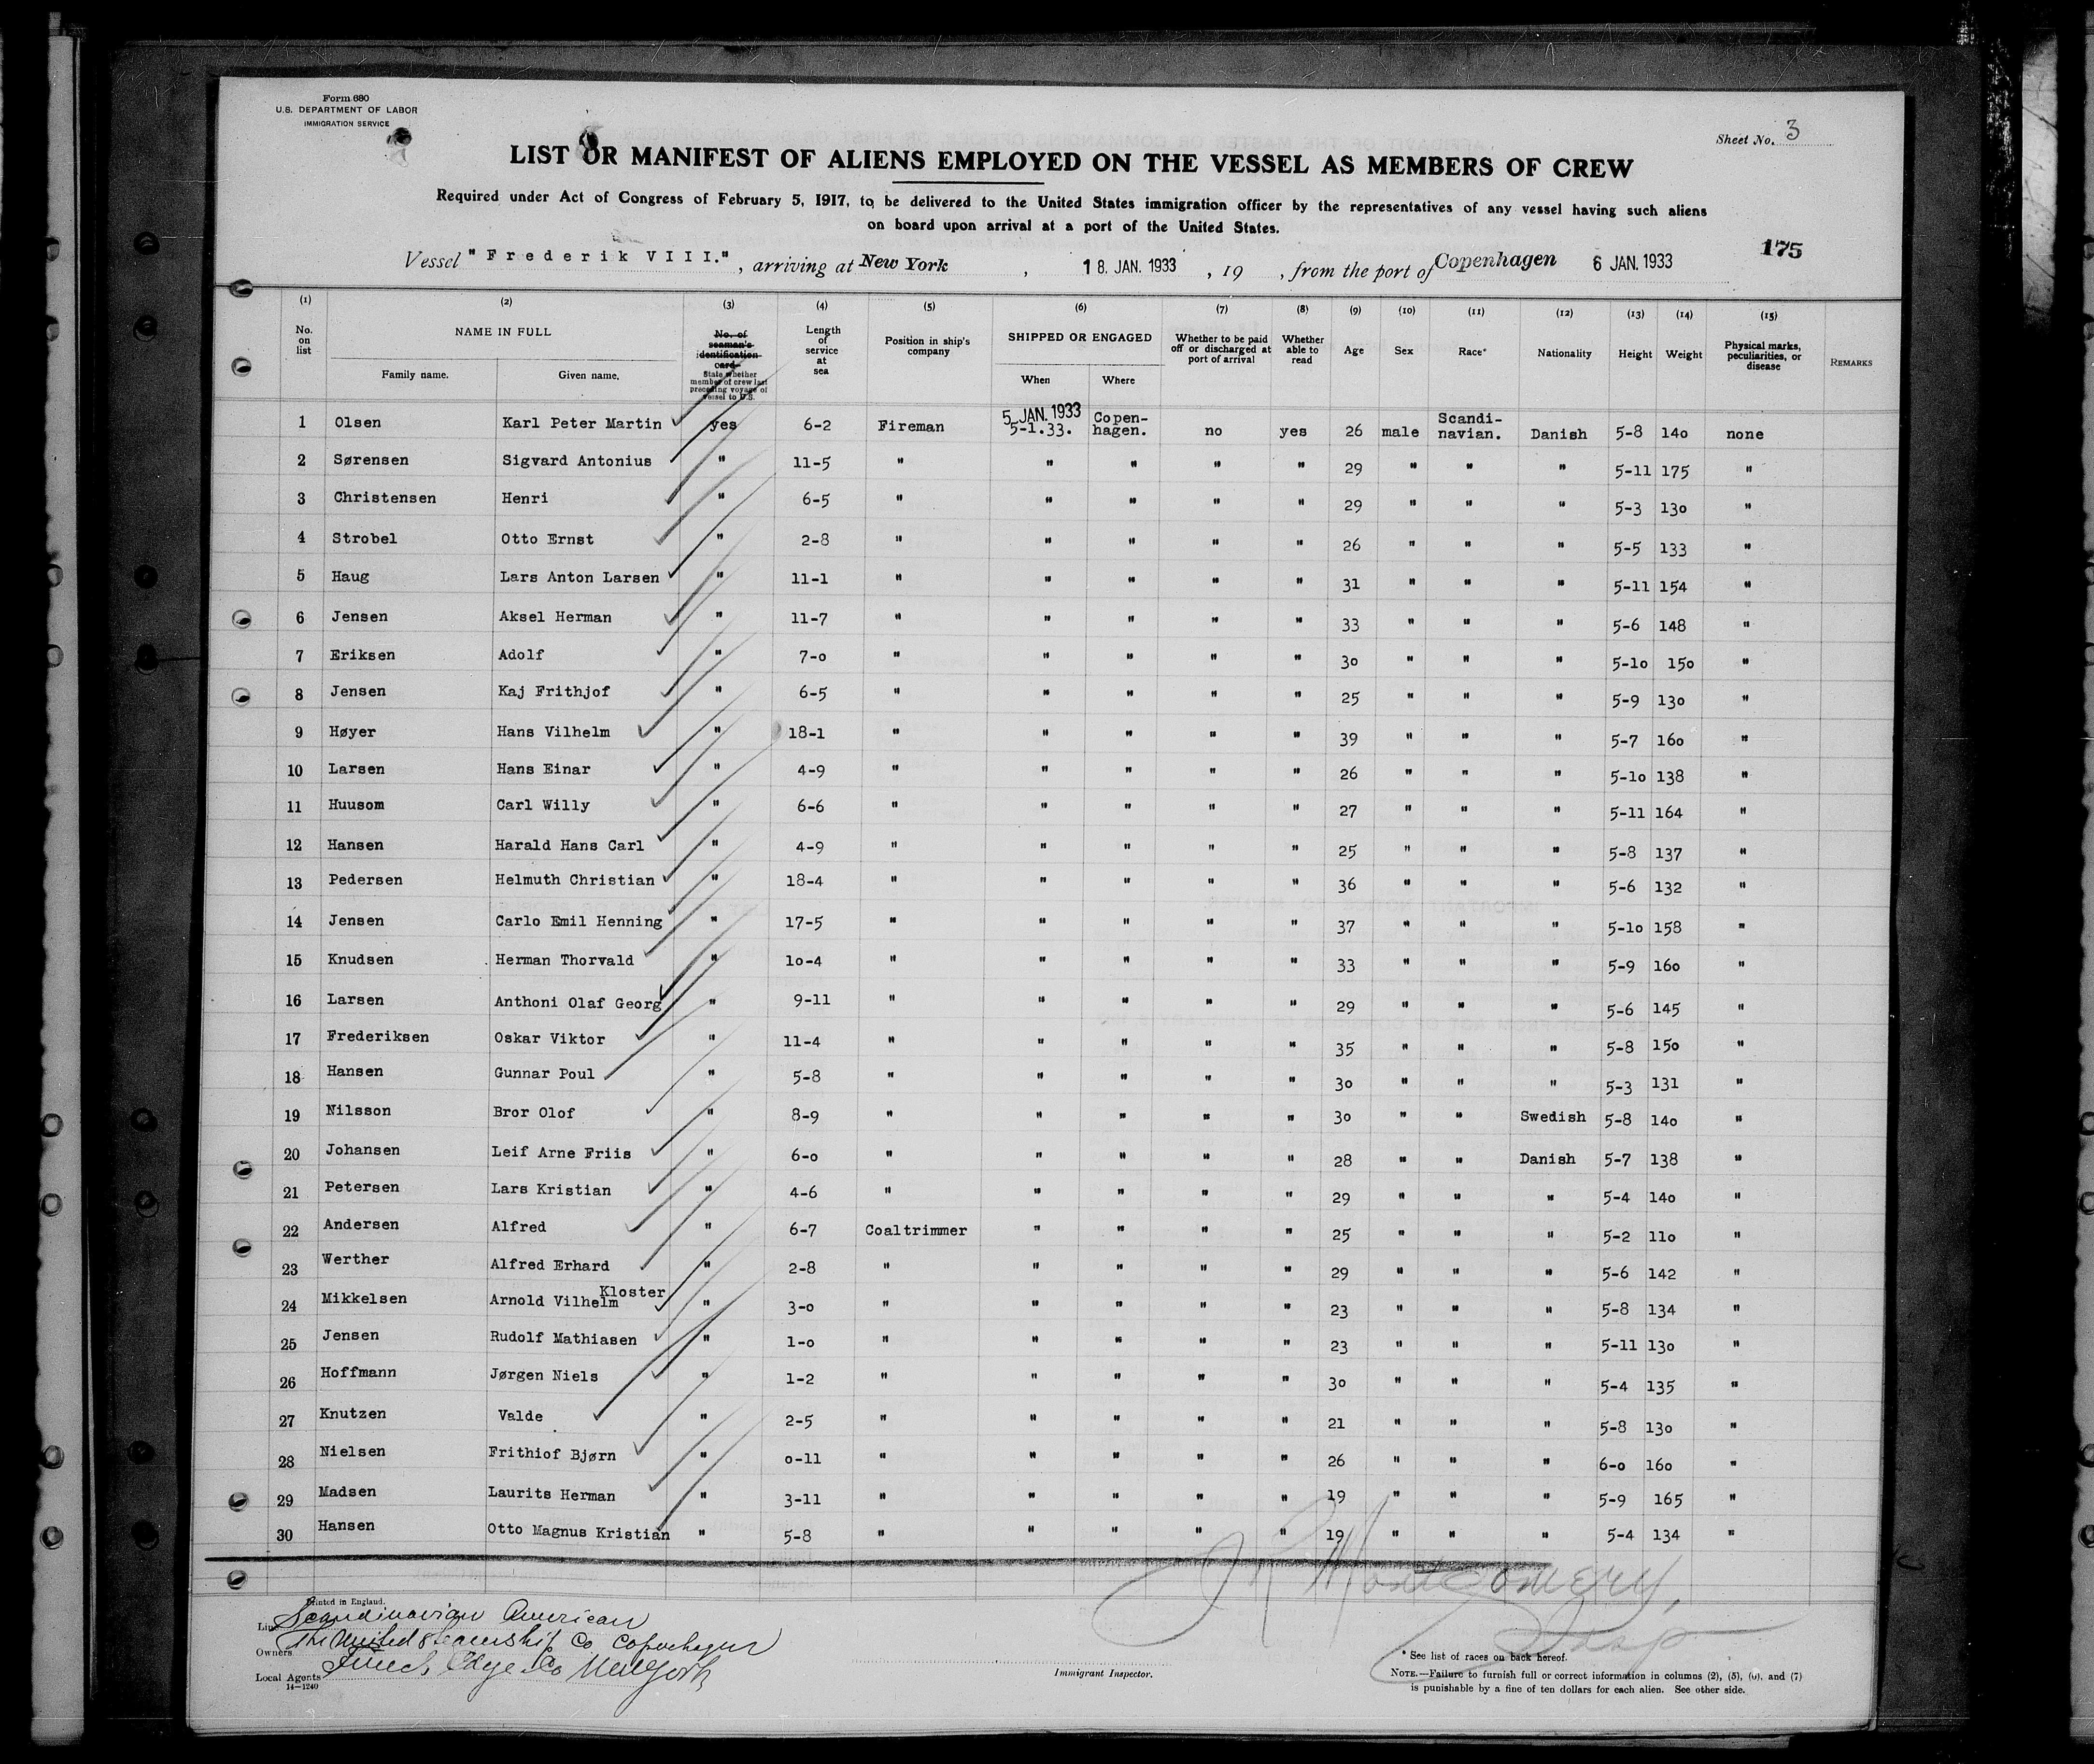 Form 680
U.S. DEPARTMENT OF LABOR
IMMIGRATION SERVICE
Sheet No. 3
LIST OR MANIFEST OF ALIENS EMPLOYED ON THE VESSEL AS MEMBERS OF CREW
Required under Act of Congress of February 5, 1917, to be delivered to the United States immigration officer by the representatives of any vessel having such aliens
on board upon arrival at a port of the United States.
175
Vessel "Frederik VIII.", arriving at New York, 18. JAN. 1933, 19 , from the port of Copenhagen 6 JAN. 1933
(1) (2) (3) (4) (5) (6) (7) (8) (9) (10) (11) (12) (13) (14) (15)
No. on list NAME IN FULL Family name. Given name. No. of seaman's identification card State whether member of crew last preceding voyage of vessel to U.S. Length of service at sea Position in ship's company SHIPPED OR ENGAGED When Where Whether to be paid off or discharged at port of arrival Whether able to read Age Sex Race* Nationality Height Weight Physical marks, peculiarities, or disease REMARKS
1 Olsen Karl Peter Martin yes 6-2 Fireman 5 JAN. 1933 5-1.33. Copen-hagen. no yes 26 male Scandi-navian. Danish 5-8 140 none
2 Sørensen Sigvard Antonius " 11-5 " " " " " 29 " " " 5-11 175 "
3 Christensen Henri " 6-5 " " " " " 29 " " " 5-3 130 "
4 Strobel Otto Ernst " 2-8 " " " " " 26 " " " 5-5 133 "
5 Haug Lars Anton Larsen " 11-1 " " " " " 31 " " " 5-11 154 "
6 Jensen Aksel Herman " 11-7 " " " " " 33 " " " 5-6 148 "
7 Eriksen Adolf " 7-0 " " " " " 30 " " " 5-10 150 "
8 Jensen Kaj Frithjof " 6-5 " " " " " 25 " " " 5-9 130 "
9 Høyer Hans Vilhelm " 18-1 " " " " " 39 " " " 5-7 160 "
10 Larsen Hans Einar " 4-9 " " " " " 26 " " " 5-10 138 "
11 Huusom Carl Willy " 6-6 " " " " " 27 " " " 5-11 164 "
12 Hansen Harald Hans Carl " 4-9 " " " " " 25 " " " 5-8 137 "
13 Pedersen Helmuth Christian " 18-4 " " " " " 36 " " " 5-6 132 "
14 Jensen Carlo Emil Henning " 17-5 " " " " " 37 " " " 5-10 158 "
15 Knudsen Herman Thorvald " 10-4 " " " " " 33 " " " 5-9 160 "
16 Larsen Anthoni Olaf Georg " 9-11 " " " " " 29 " " " 5-6 145 "
17 Frederiksen Oskar Viktor " 11-4 " " " " " 35 " " " 5-8 150 "
18 Hansen Gunnar Poul " 5-8 " " " " " 30 " " " 5-3 131 "
19 Nilsson Bror Olof " 8-9 " " " " " 30 " " Swedish 5-8 140 "
20 Johansen Leif Arne Friis " 6-0 " " " " " 28 " " Danish 5-7 138 "
21 Petersen Lars Kristian " 4-6 " " " " " 29 " " " 5-4 140 "
22 Andersen Alfred " 6-7 Coaltrimmer " " " " 25 " " " 5-2 110 "
23 Werther Alfred Erhard " 2-8 " " " " " 29 " " " 5-6 142 "
24 Mikkelsen Arnold Vilhelm Kloster " 3-0 " " " " " 23 " " " 5-8 134 "
25 Jensen Rudolf Mathiasen " 1-0 " " " " " 23 " " " 5-11 130 "
26 Hoffmann Jørgen Niels " 1-2 " " " " " 30 " " " 5-4 135 "
27 Knutzen Valde " 2-5 " " " " " 21 " " " 5-8 130 "
28 Nielsen Frithiof Bjørn " 0-11 " " " " " 26 " " " 6-0 160 "
29 Madsen Laurits Herman " 3-11 " " " " " 19 " " " 5-9 165 "
30 Hansen Otto Magnus Kristian " 5-8 " " " " " 19 " " " 5-4 134 "
Montgomery,
Printed in England.
Line Scandinavian American
Owners The United Steamship Co Copenhagen
Local Agents Funch Edye Co New York
14—1240
Immigrant Inspector.
* See list of races on back hereof.
NOTE.—Failure to furnish full or correct information in columns (2), (5), (6), and (7)
is punishable by a fine of ten dollars for each alien. See other side.